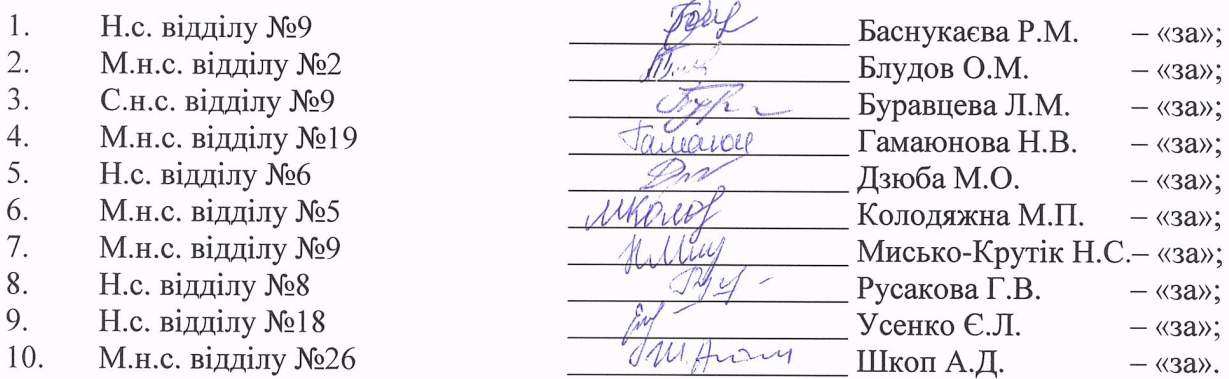 1. Н.с. відділу №9 Баснукаєва Р.М. – «за»;
2. М.н.с. відділу №2 Блудов О.М. – «за»;
3. С.н.с. відділу №9 Буравцева Л.М. – «за»;
4. М.н.с. відділу №19 Гамаюнова Н.В. – «за»;
5. Н.с. відділу №6 Дзюба М.О. – «за»;
6. М.н.с. відділу №5 Колодяжна М.П. – «за»;
7. М.н.с. відділу №9 Мисько-Крутік Н.С. – «за»;
8. Н.с. відділу №8 Русакова Г.В. – «за»;
9. Н.с. відділу №18 Усенко Є.Л. – «за»;
10. М.н.с. відділу №26 Шкоп А.Д. – «за».